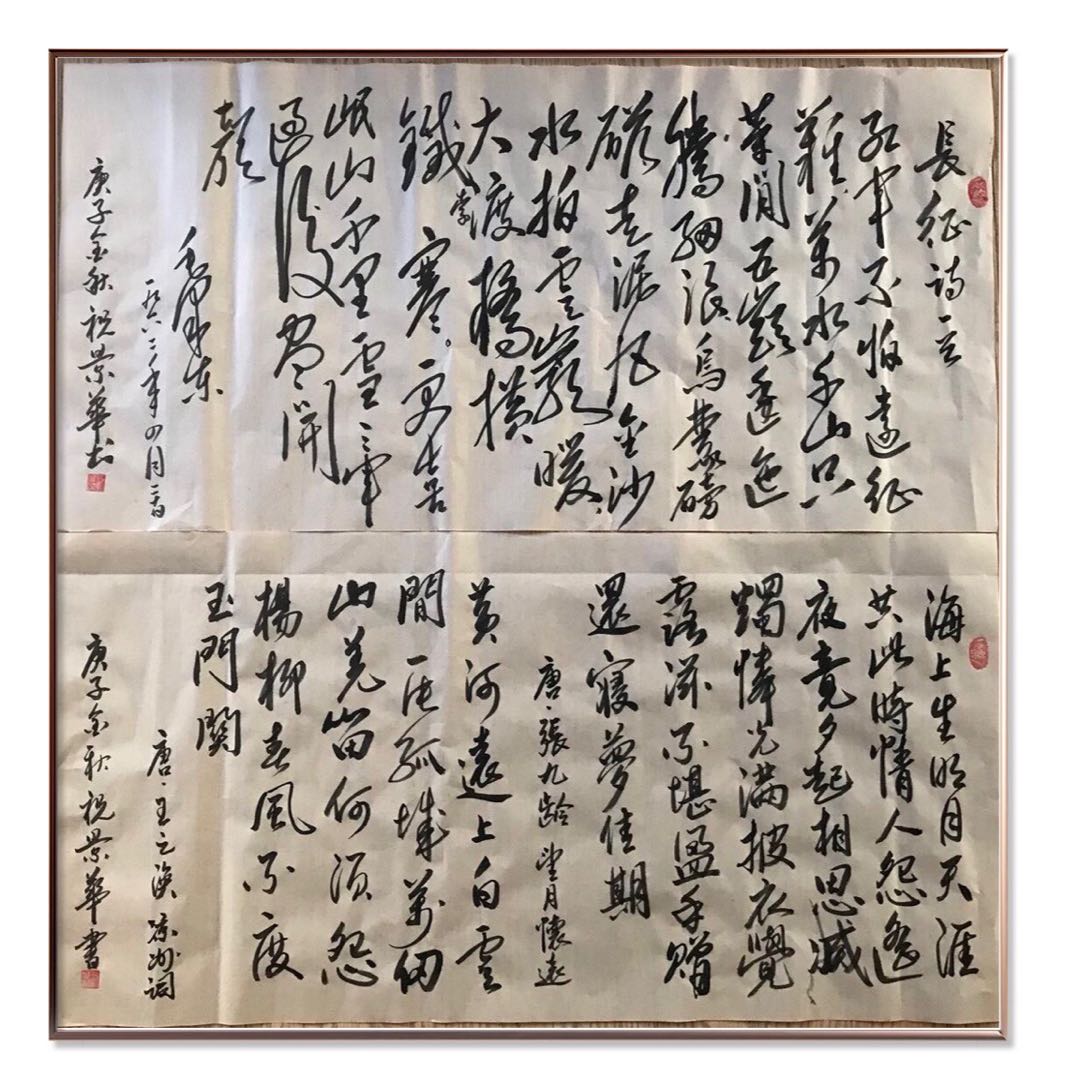 長征诗一首
红軍不怕遠征
難萬水千山只
等閒五嶺逶迤
騰細浪烏蒙磅
礴走泥丸金沙
水拍雲巖暖
大渡橋橫
鐵索寒。更喜
岷山千里雪三軍
過後盡開
顏
毛澤東
一九六二年四月二十日
庚子金秋祝景華书
海上生明月天涯
共此時情人怨遙
夜竟夕起相思滅
燭憐光满披衣覺
露滋不堪盈手贈
還寢夢佳期
唐·張九龄望月懷遠
黄河遠上白雲
間一片孤城萬仞
山羌笛何須怨
楊柳春風不度
玉門關
唐·王之渙凉州詞
庚子金秋祝景華書